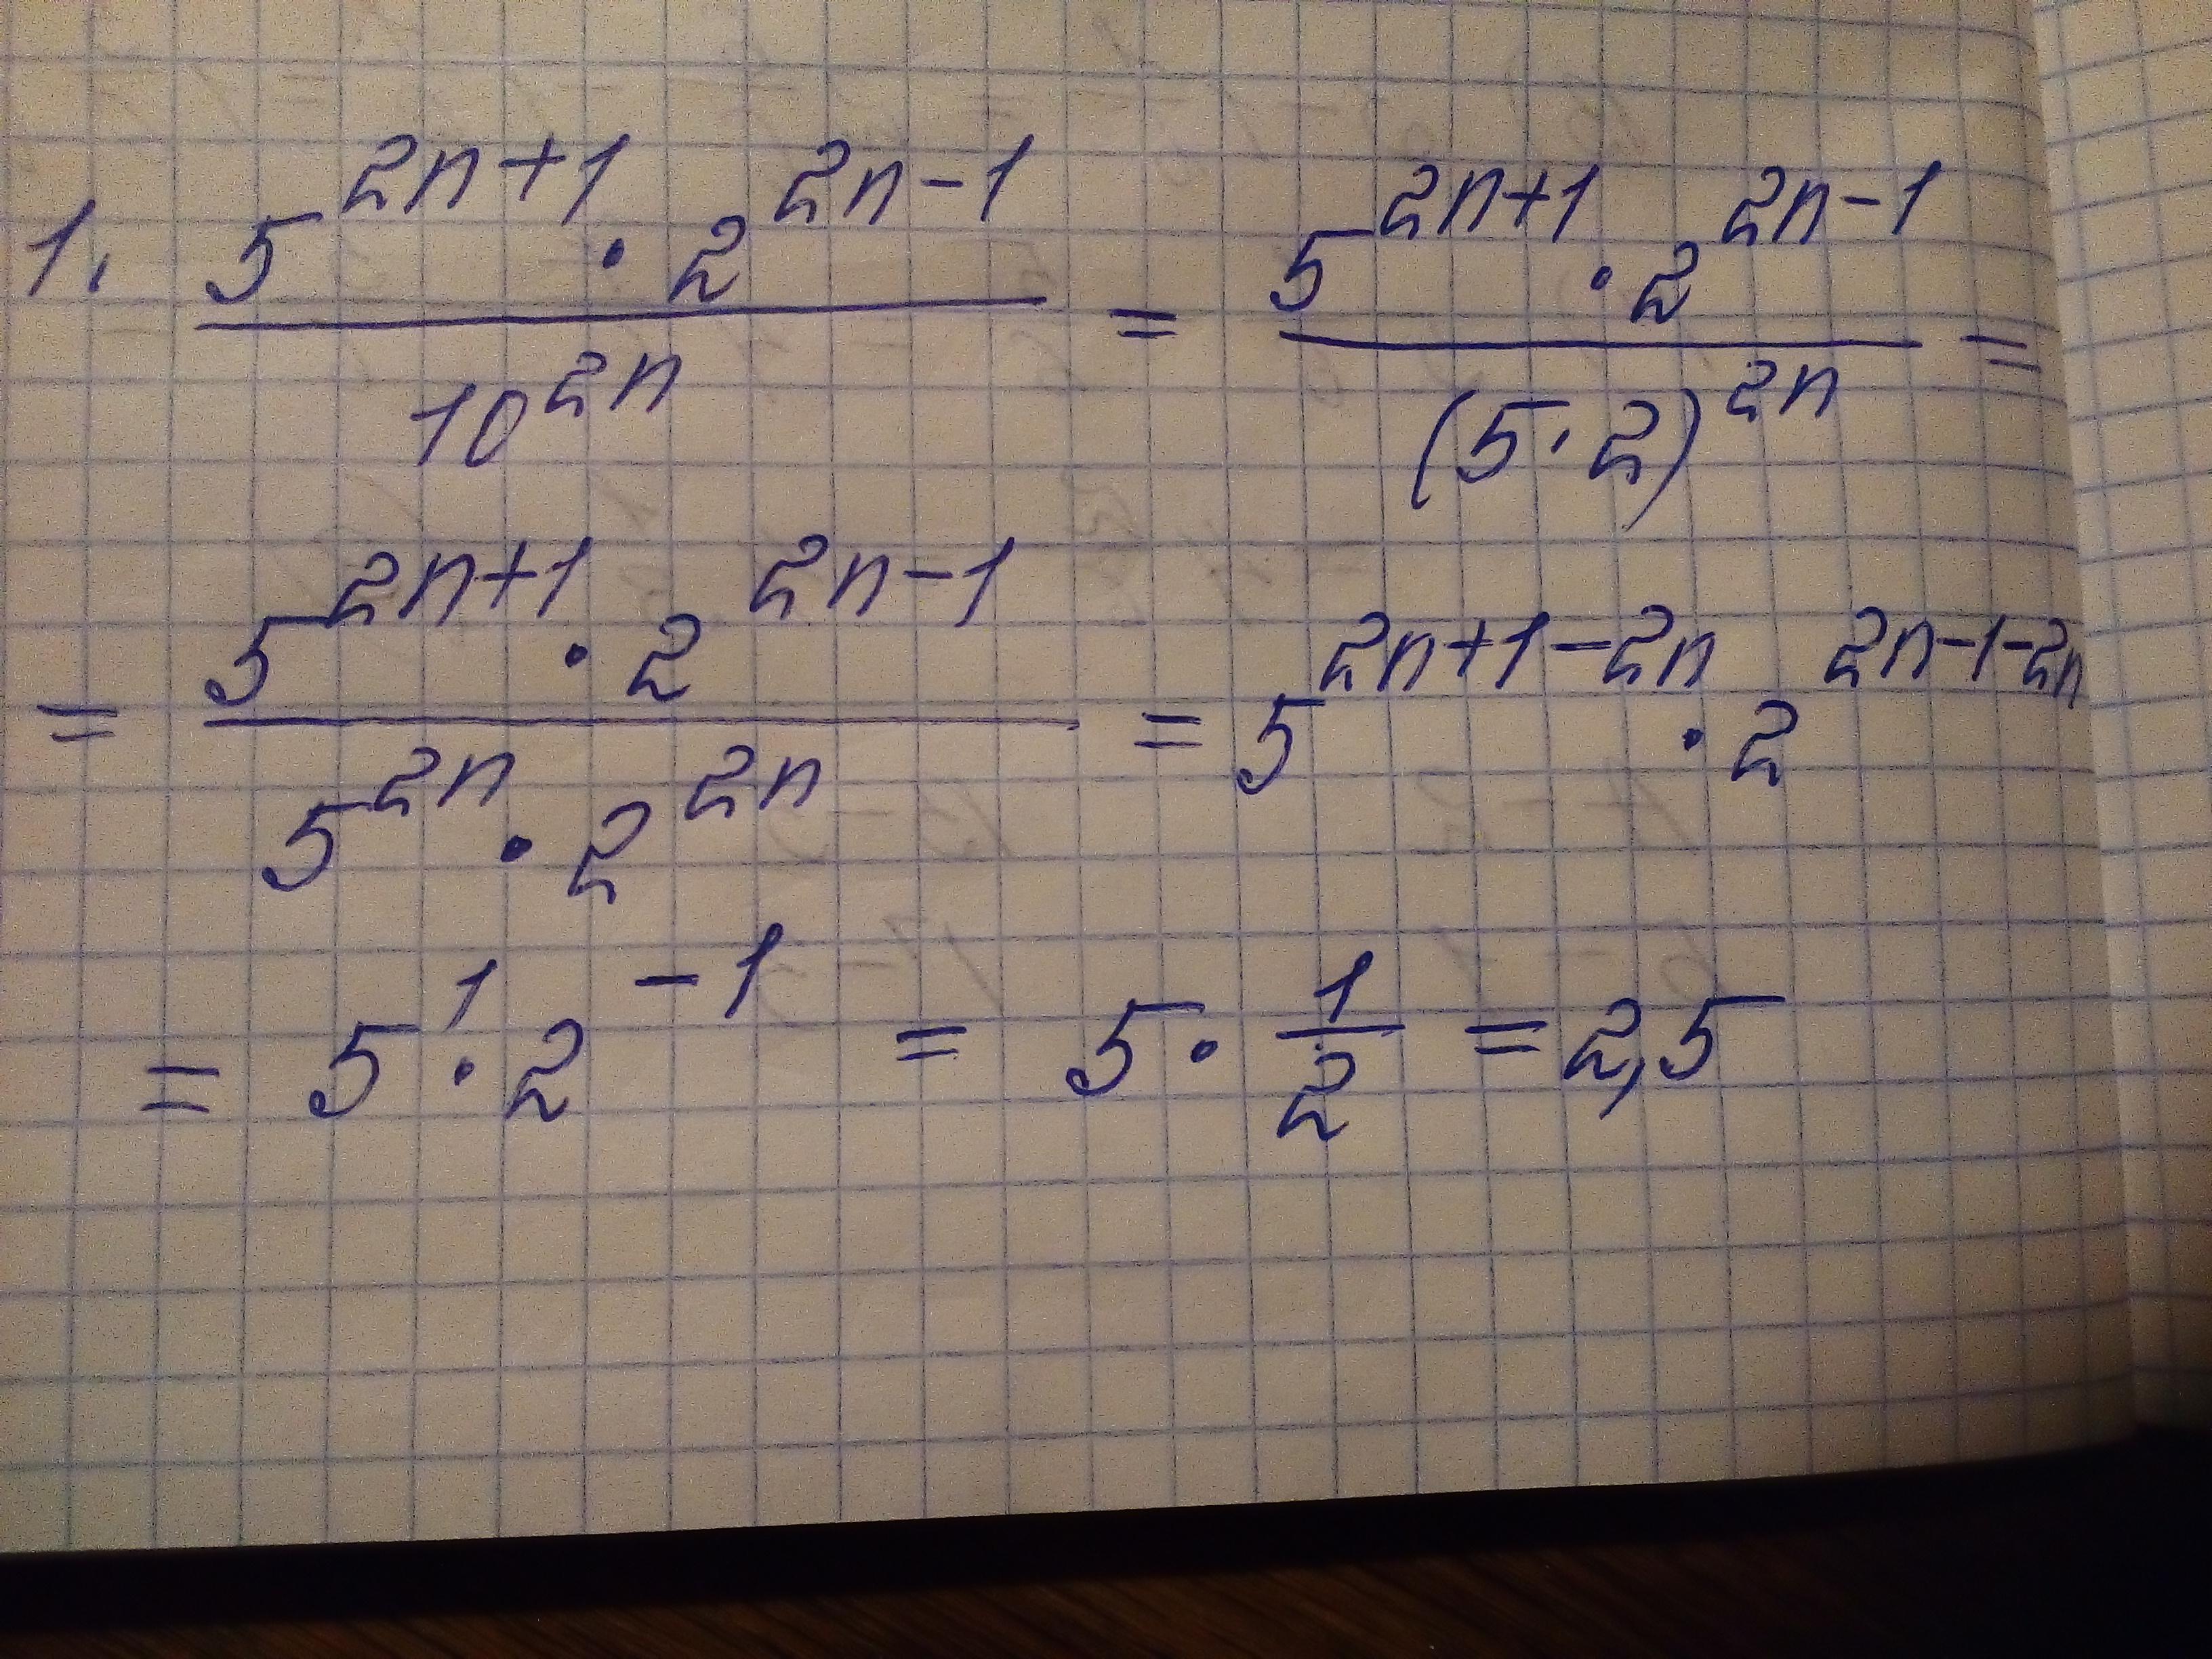 1. \frac{5^{2n+1} \cdot 2^{2n-1}}{10^{2n}} = \frac{5^{2n+1} \cdot 2^{2n-1}}{(5 \cdot 2)^{2n}} =
= \frac{5^{2n+1} \cdot 2^{2n-1}}{5^{2n} \cdot 2^{2n}} = 5^{2n+1-2n} \cdot 2^{2n-1-2n}
= 5^{1} \cdot 2^{-1} = 5 \cdot \frac{1}{2} = 2,5